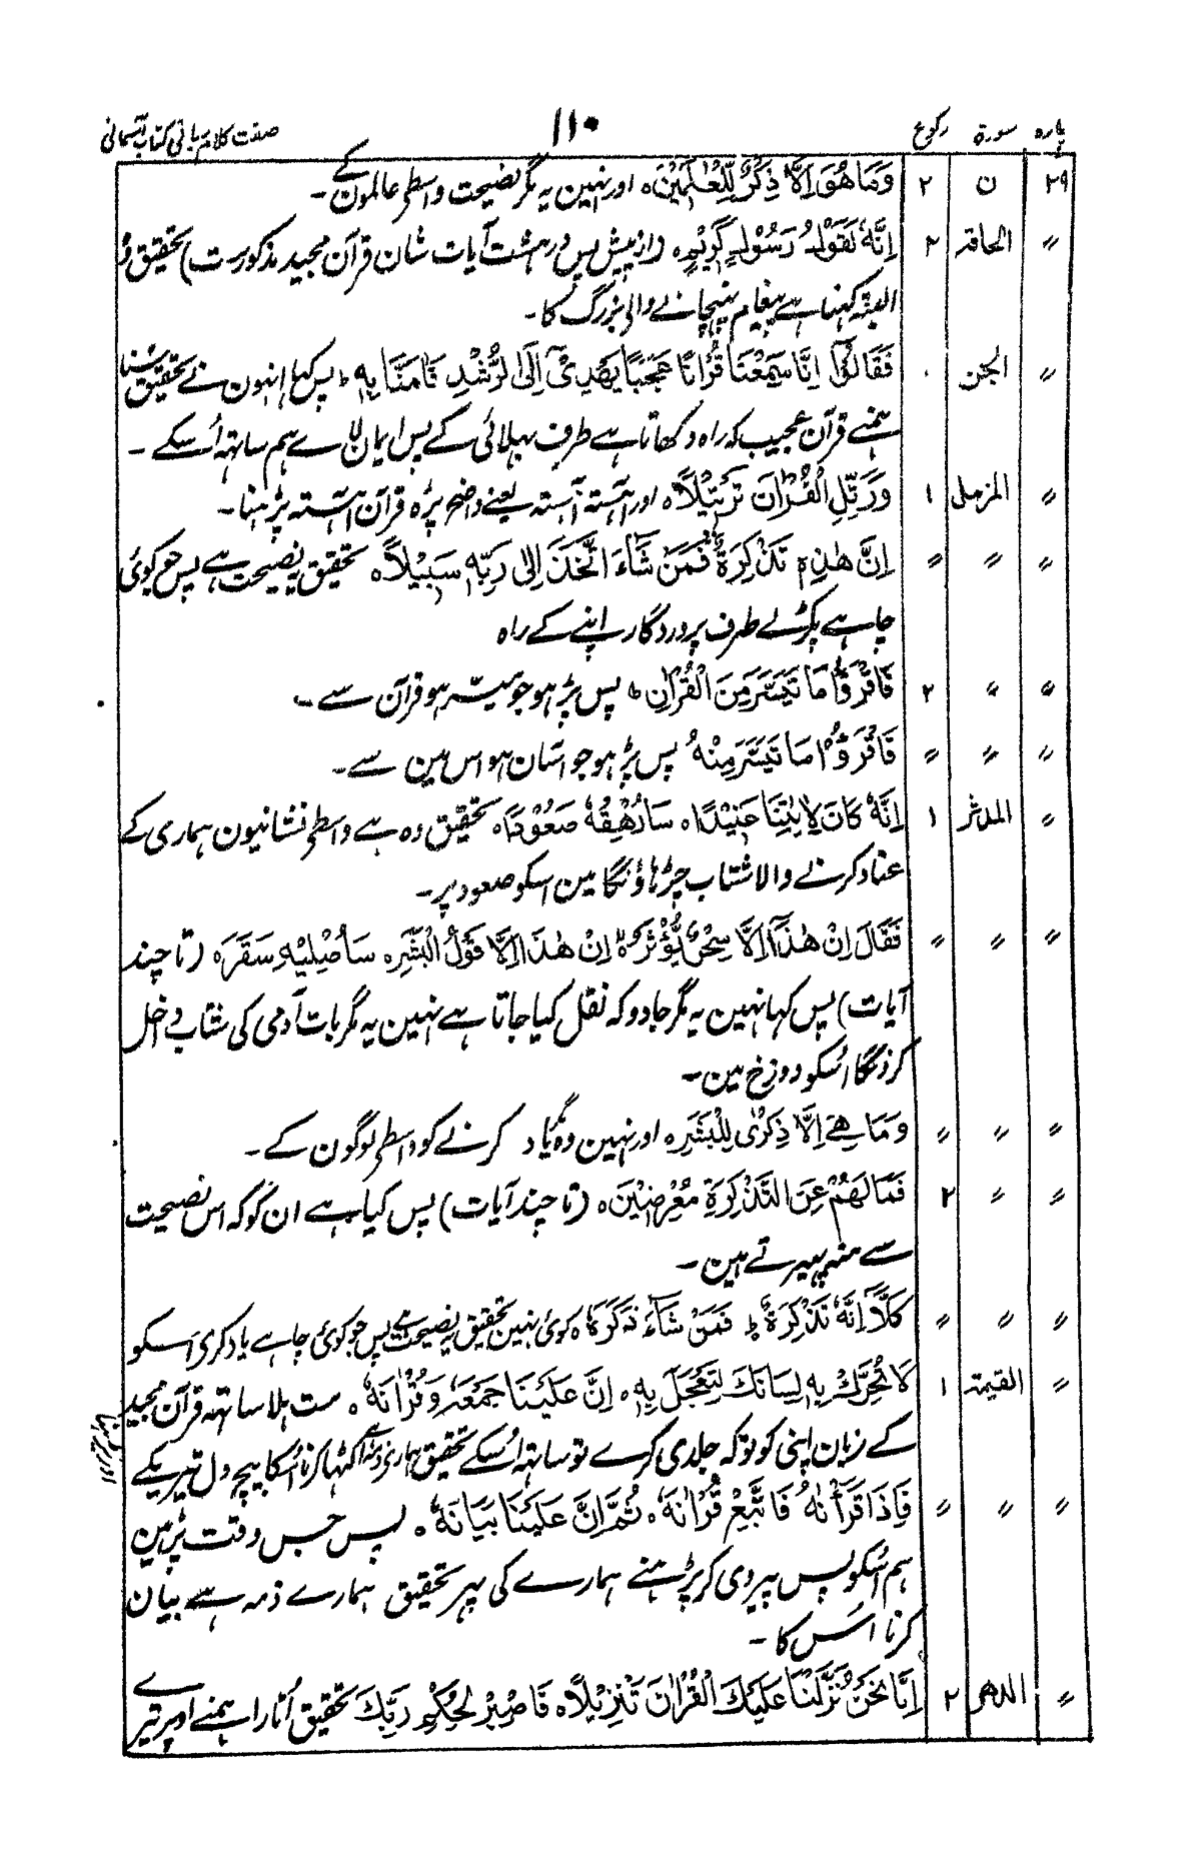 پارہ سورۃ رکوع ۱۱۰ صفت کلام ربانی کتاب آسمانی
۲۹ ن ۲ وَمَا هُوَ اِلَّا ذِكْرٌ لِّلْعٰلَمِيْنَ ہ اور نہین یہ مگر نصیحت واسطے عالمون کے ۔
〃 الحاقہ ۲ اِنَّهٗ لَقَوْلُ رَسُوْلٍ كَرِيْمٍ ہ (از پیش پس در ہشت آیات شان قرآن مجید مذکورست) تحقیق وہ
البتہ کہنا ہے پیغام پہنچانے والی بزرگ کا ۔
〃 الجن ۰ فَقَالُوْٓا اِنَّا سَمِعْنَا قُرْاٰنًا عَجَبًا يَّهْدِىْٓ اِلَى الرُّشْدِ فَاٰمَنَّا بِهٖ ط پس کہا انہون نے تحقیق سُنا
ہمنے قرآن عجیب کہ راہ دکھاتا ہے طرف بہلائی کے پس ایمان لاے ہم ساتہہ اُسکے ۔
〃 المزمل ۱ وَرَتِّلِ الْقُرْاٰنَ تَرْتِيْلًا ہ اور آہستہ آہستہ یعنے واضح پڑہ قرآن آہستہ پڑہنا ۔
〃 〃 〃 اِنَّ هٰذِهٖ تَذْكِرَةٌ فَمَنْ شَآءَ اتَّخَذَ اِلٰى رَبِّهٖ سَبِيْلًا ہ تحقیق یہ نصیحت ہے پس جو کوئی
چاہے پکڑ لے طرف پروردگار اپنے کے راہ
〃 〃 ۲ فَاقْرَءُوْا مَا تَيَسَّرَ مِنَ الْقُرْاٰنِ ط پس پڑہو جو میسر ہو قرآن سے ۔
〃 〃 〃 فَاقْرَءُوْا مَا تَيَسَّرَ مِنْهُ پس پڑہو جو آسان ہو اس مین سے ۔
〃 المدثر ۱ اِنَّهٗ كَانَ لِاٰيٰتِنَا عَنِيْدًا ہ سَاُرْهِقُهٗ صَعُوْدًا ہ تحقیق وہ ہے واسطے نشانیون ہماری کے
عناد کرنے والا شتاب چڑہاؤنگا مین اسکو صعود پر ۔
〃 〃 〃 فَقَالَ اِنْ هٰذَآ اِلَّا سِحْرٌ يُّؤْثَرُ ہ اِنْ هٰذَآ اِلَّا قَوْلُ الْبَشَرِ ہ سَاُصْلِيْهِ سَقَرَ ہ (تا چند
آیات) پس کہا نہین یہ مگر جادو کہ نقل کیا جاتا ہے نہین یہ مگر بات آدمی کی شتاب داخل
کرونگا اسکو دوزخ مین ۔
〃 〃 〃 وَمَا هِىَ اِلَّا ذِكْرٰى لِلْبَشَرِ ہ اور نہین وہ مگر یاد کرنے کو واسطے لوگون کے ۔
〃 〃 ۲ فَمَا لَهُمْ عَنِ التَّذْكِرَةِ مُعْرِضِيْنَ ہ (تا چند آیات) پس کیا ہے ان کو کہ اس نصیحت
سے منہہ پہیرتے ہین ۔
〃 〃 〃 كَلَّآ اِنَّهٗ تَذْكِرَةٌ ط فَمَنْ شَآءَ ذَكَرَهٗ ہ کوئی نہین تحقیق یہ نصیحت ہے پس جو کوئی چاہے یاد کری اسکو
〃 القیمۃ ۱ لَا تُحَرِّكْ بِهٖ لِسَانَكَ لِتَعْجَلَ بِهٖ ہ اِنَّ عَلَيْنَا جَمْعَهٗ وَقُرْاٰنَهٗ ہ مت ہلا ساتہہ قرآن مجید
کے زبان اپنی کو توکہ جلدی کرے تو ساتہہ اُسکے تحقیق ہمارے ذمہ ہے اکٹہا کرنا اُسکا بیچ دل تیرے کے
〃 〃 〃 فَاِذَا قَرَاْنٰهُ فَاتَّبِعْ قُرْاٰنَهٗ ہ ثُمَّ اِنَّ عَلَيْنَا بَيَانَهٗ ہ پس جس وقت پڑہین
ہم اُسکو پس پیروی کر پڑہنے ہمارے کی پہر تحقیق ہمارے ذمہ ہے بیان
کرنا اُس کا ۔
〃 الدهر ۲ اِنَّا نَحْنُ نَزَّلْنَا عَلَيْكَ الْقُرْاٰنَ تَنْزِيْلًا ہ فَاصْبِرْ لِحُكْمِ رَبِّكَ تحقیق اُتارا ہمنے اوپر تیرے